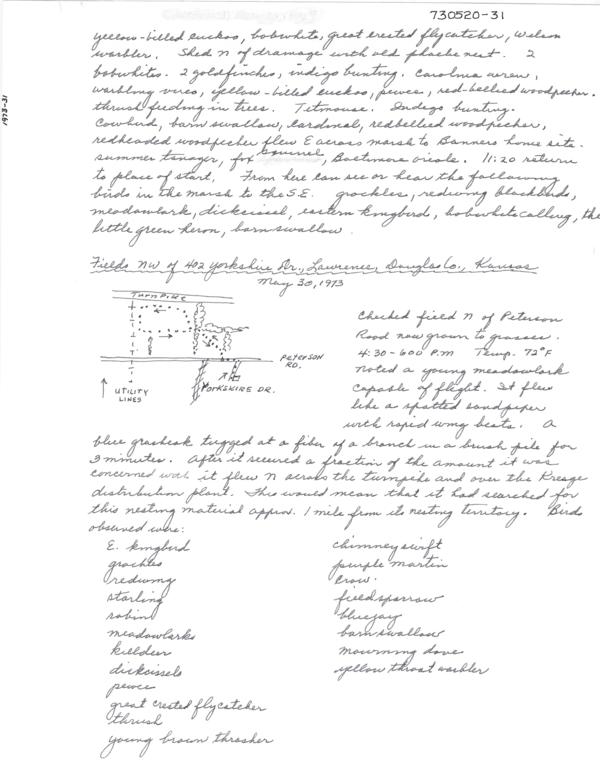 730520-31
1973-31
yellow-billed cuckoo, bobwhite, great crested flycatcher, Wilson
warbler. Shed N of drainage with old phoebe nest. 2
bobwhites. 2 goldfinches, indigo bunting. Carolina wren,
warbling vireo, yellow-billed cuckoo, pewee, red-bellied woodpecker.
thrush feeding in trees. Titmouse. Indigo bunting.
Cowbird, barn swallow, Cardinal, redbellied woodpecker,
redheaded woodpecker flew E across marsh to Banners home site.
summer tanager, fox squirrel, Baltimore oriole. 11:20 return
to place of start. From here can see or hear the following
birds in the marsh to the S.E. grackles, redwing blackbirds,
meadowlark, dickcissel, eastern kingbird, bobwhite calling, the
little green heron, barn swallow.
Fields NW of 402 Yorkshire Dr., Lawrence, Douglas Co., Kansas
May 30, 1973
TURNPIKE
PETERSON
RD.
YORKSHIRE DR.
UTILITY
LINES
Checked field N of Peterson
Road now grown to grasses.
4:30-600 P.M Temp. 72°F
Noted a young meadowlark
capable of flight. It flew
like a spotted sandpiper
with rapid wing beats. A
blue grosbeak tugged at a fiber of a branch in a brush pile for
3 minutes. After it secured a fraction of the amount it was
concerned with it flew N across the turnpike and over the Kresge
distribution plant. This would mean that it had searched for
this nesting material approx. 1 mile from its nesting territory. Birds
observed were:
E. kingbird
grackles
redwing
starling
robin
meadowlarks
killdeer
dickcissels
pewee
great crested flycatcher
thrush
young brown thrasher
chimney swift
purple martin
crow
field sparrow
bluejay
barn swallow
mourning dove
yellow throat warbler